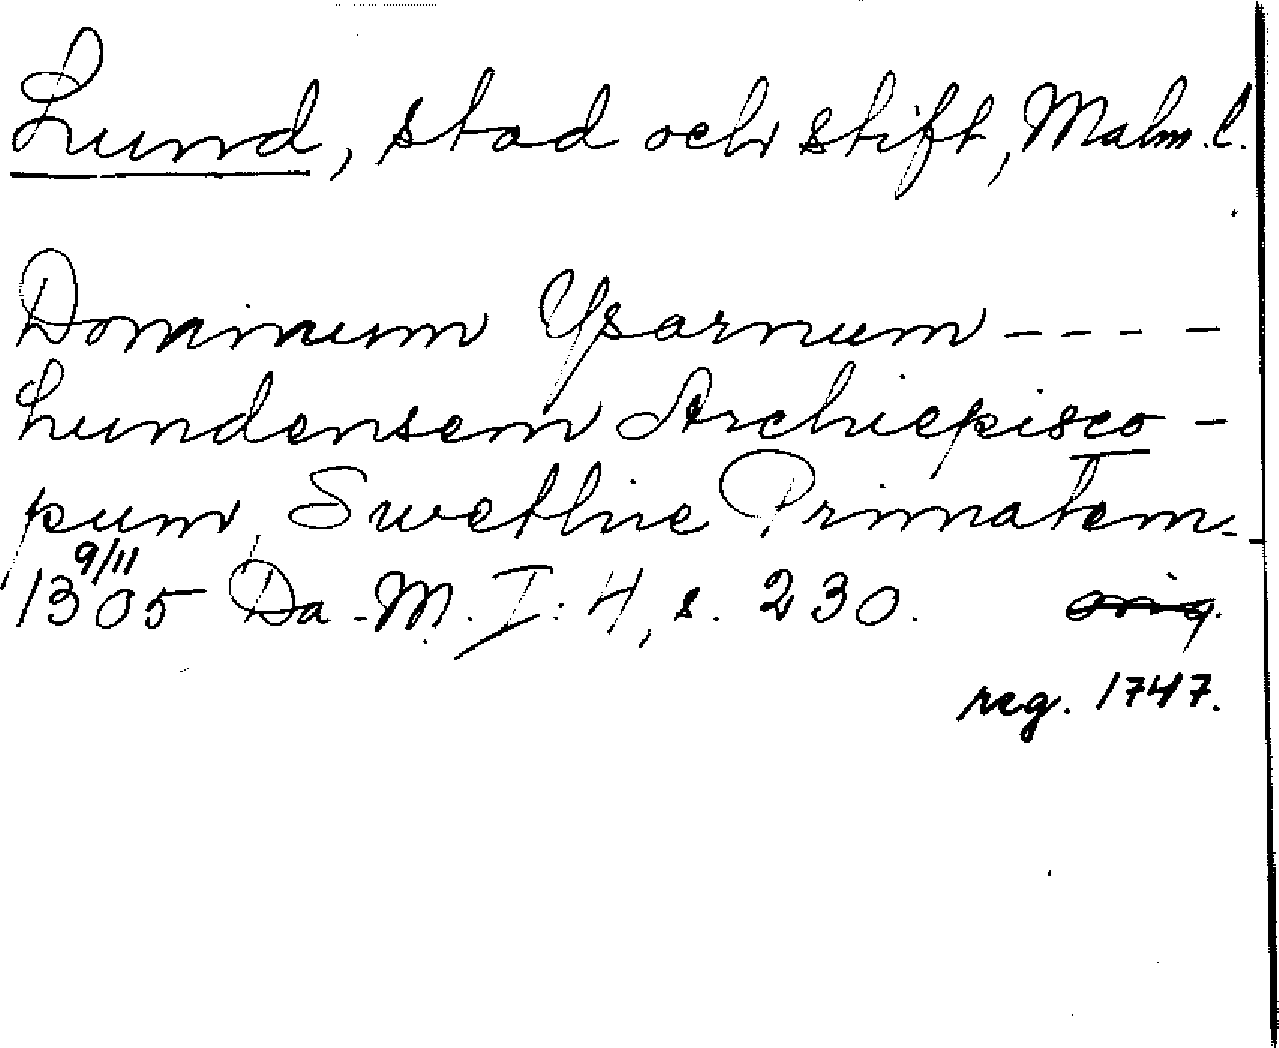 Lund, stad och stift, Malm. l.
Dominum Ysarnum - - - -
Lundensem Archiepisco -
pum, Swethie Primatem.
1305 9/11 Da-M. I: 4, s. 230. orig.
reg. 1747.